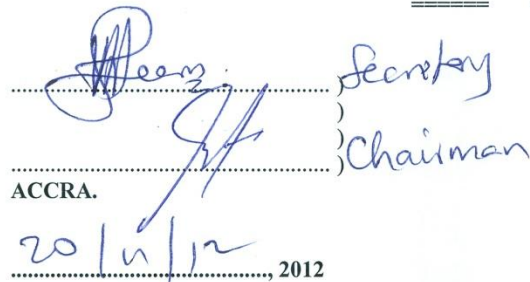 ) Secretary
)
)
) Chairman
ACCRA.
20/11/12
, 2012